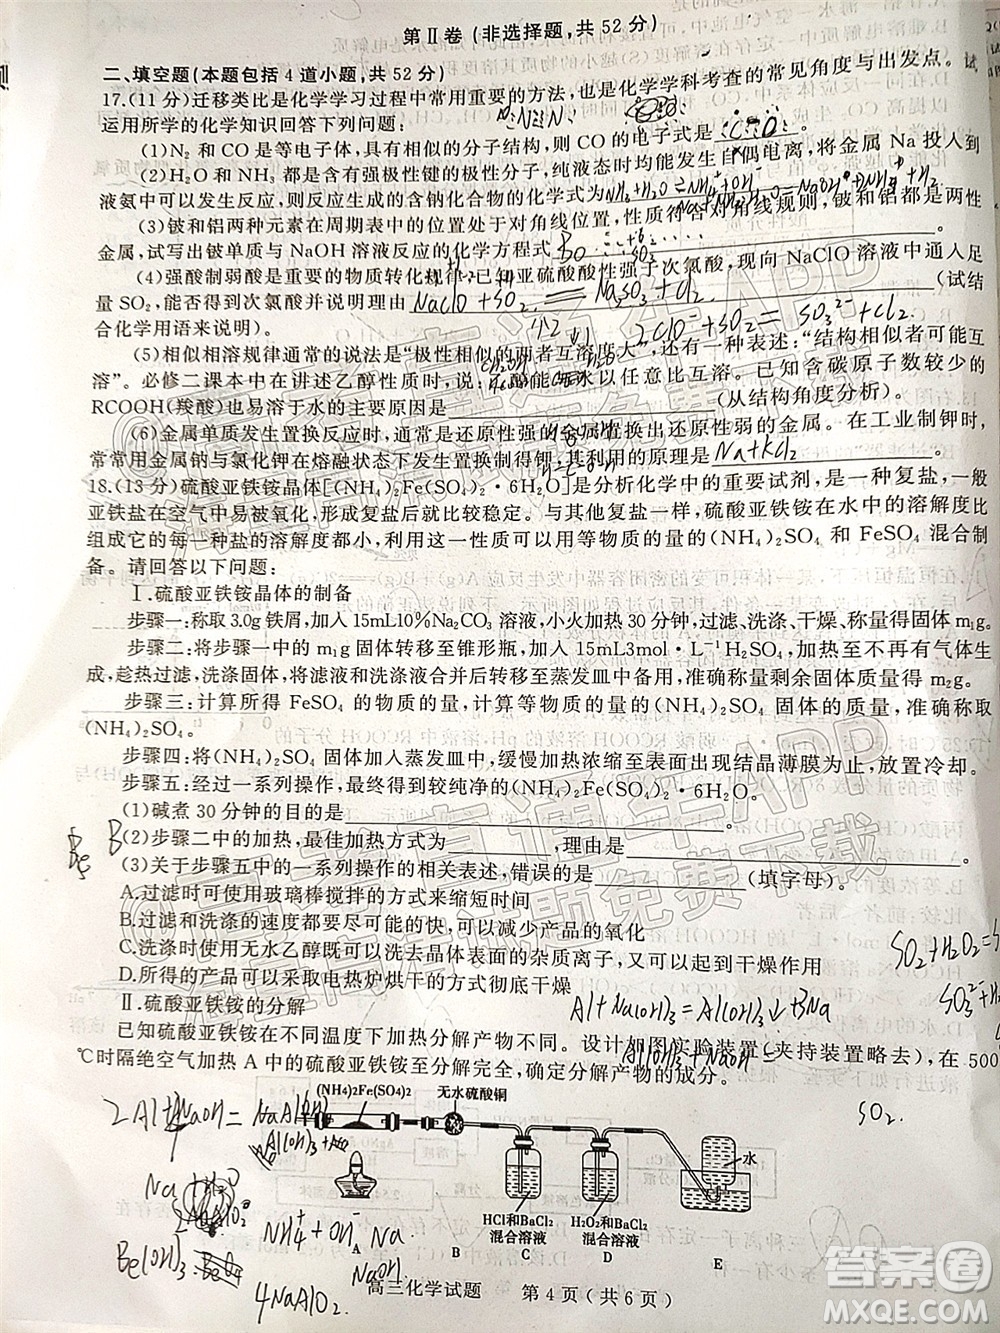 第Ⅱ卷(非选择题,共52分)
二、填空题(本题包括4道小题,共52分)
17.(11分)迁移类比是化学学习过程中常用重要的方法,也是化学学科考查的常见角度与出发点。试
运用所学的化学知识回答下列问题:
(1)N₂和CO是等电子体,具有相似的分子结构,则CO的电子式是
(2)H₂O和NH₃都是含有强极性键的极性分子,纯液态时均能发生自偶电离,将金属Na投入到
液氨中可以发生反应,则反应生成的含钠化合物的化学式为 NH₃+H₂O⇌NH₄⁺+OH⁻
(3)铍和铝两种元素在周期表中的位置处于对角线位置,性质符合对角线规则,铍和铝都是两性
金属,试写出铍单质与NaOH溶液反应的化学方程式
(4)强酸制弱酸是重要的物质转化规律,已知亚硫酸酸性强于次氯酸,现向NaClO溶液中通入足
量SO₂,能否得到次氯酸并说明理由 NaClO+SO₂=Na₂SO₃+Cl₂ (试结
合化学用语来说明)。 2ClO⁻+SO₂=SO₃²⁻+Cl₂
(5)相似相溶规律通常的说法是“极性相似的两者互溶度大”,还有一种表述:“结构相似者可能互
溶”。必修二课本中在讲述乙醇性质时,说:乙醇能与水以任意比互溶。含碳原子数较少的
RCOOH(羧酸)也易溶于水的主要原因是 (从结构角度分析)。
(6)金属单质发生置换反应时,通常是还原性强的金属置换出还原性弱的金属。在工业制钾时,
常常用金属钠与氯化钾在熔融状态下发生置换制得钾,其利用的原理是 Na+KCl₂ 。
18.(13分)硫酸亚铁铵晶体[(NH₄)₂Fe(SO₄)₂·6H₂O]是分析化学中的重要试剂,是一种复盐,一般
亚铁盐在空气中易被氧化,形成复盐后就比较稳定。与其他复盐一样,硫酸亚铁铵在水中的溶解度比
组成它的每一种盐的溶解度都小,利用这一性质可以用等物质的量的(NH₄)₂SO₄和FeSO₄混合制
备。请回答以下问题:
Ⅰ.硫酸亚铁铵晶体的制备
步骤一:称取3.0g铁屑,加入15mL10%Na₂CO₃溶液,小火加热30分钟,过滤、洗涤、干燥、称量得固体m₁g。
步骤二:将步骤一中的m₁g固体转移至锥形瓶,加入15mL3mol·L⁻¹H₂SO₄,加热至不再有气体生
成,趁热过滤、洗涤固体,将滤液和洗涤液合并后转移至蒸发皿中备用,准确称量剩余固体质量得m₂g。
步骤三:计算所得FeSO₄的物质的量,计算等物质的量的(NH₄)₂SO₄固体的质量,准确称取
(NH₄)₂SO₄。
步骤四:将(NH₄)₂SO₄固体加入蒸发皿中,缓慢加热浓缩至表面出现结晶薄膜为止,放置冷却。
步骤五:经过一系列操作,最终得到较纯净的(NH₄)₂Fe(SO₄)₂·6H₂O。
(1)碱煮30分钟的目的是 。
(2)步骤二中的加热,最佳加热方式为 ,理由是 。
(3)关于步骤五中的一系列操作的相关表述,错误的是 (填字母)。
A.过滤时可使用玻璃棒搅拌的方式来缩短时间
B.过滤和洗涤的速度都要尽可能的快,可以减少产品的氧化
C.洗涤时使用无水乙醇既可以洗去晶体表面的杂质离子,又可以起到干燥作用
D.所得的产品可以采取电热炉烘干的方式彻底干燥
Ⅱ.硫酸亚铁铵的分解
已知硫酸亚铁铵在不同温度下加热分解产物不同。设计如图实验装置(夹持装置略去),在500
℃时隔绝空气加热A中的硫酸亚铁铵至分解完全,确定分解产物的成分。
(NH4)2Fe(SO4)2
无水硫酸铜
水
HCl和BaCl₂
混合溶液
H₂O₂和BaCl₂
混合溶液
A
B
C
D
E
SO₂.
4NaAlO₂
高三化学试题 第4页(共6页)
答案圈
MXQE.COM